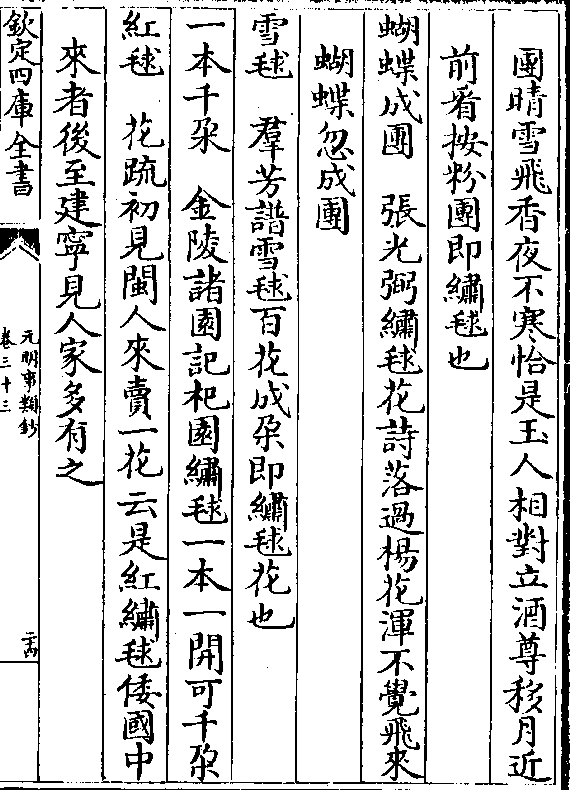 團晴雪飛香夜不寒恰是玉人相對立酒尊移月近
前看按粉團即繡毬也
蝴蝶成團　張光弼繡毬花詩落過楊花渾不覺飛來
蝴蝶忽成團
雪毬　羣芳譜雪毬百花成朶即繡毬花也
一本千朶　金陵諸園記杞園繡毬一本一開可千朶
紅毬　花疏初見閩人來賣一花云是紅繡毬倭國中
來者後至建寧見人家多有之
欽定四庫全書
元明事類鈔
卷三十三
二十四